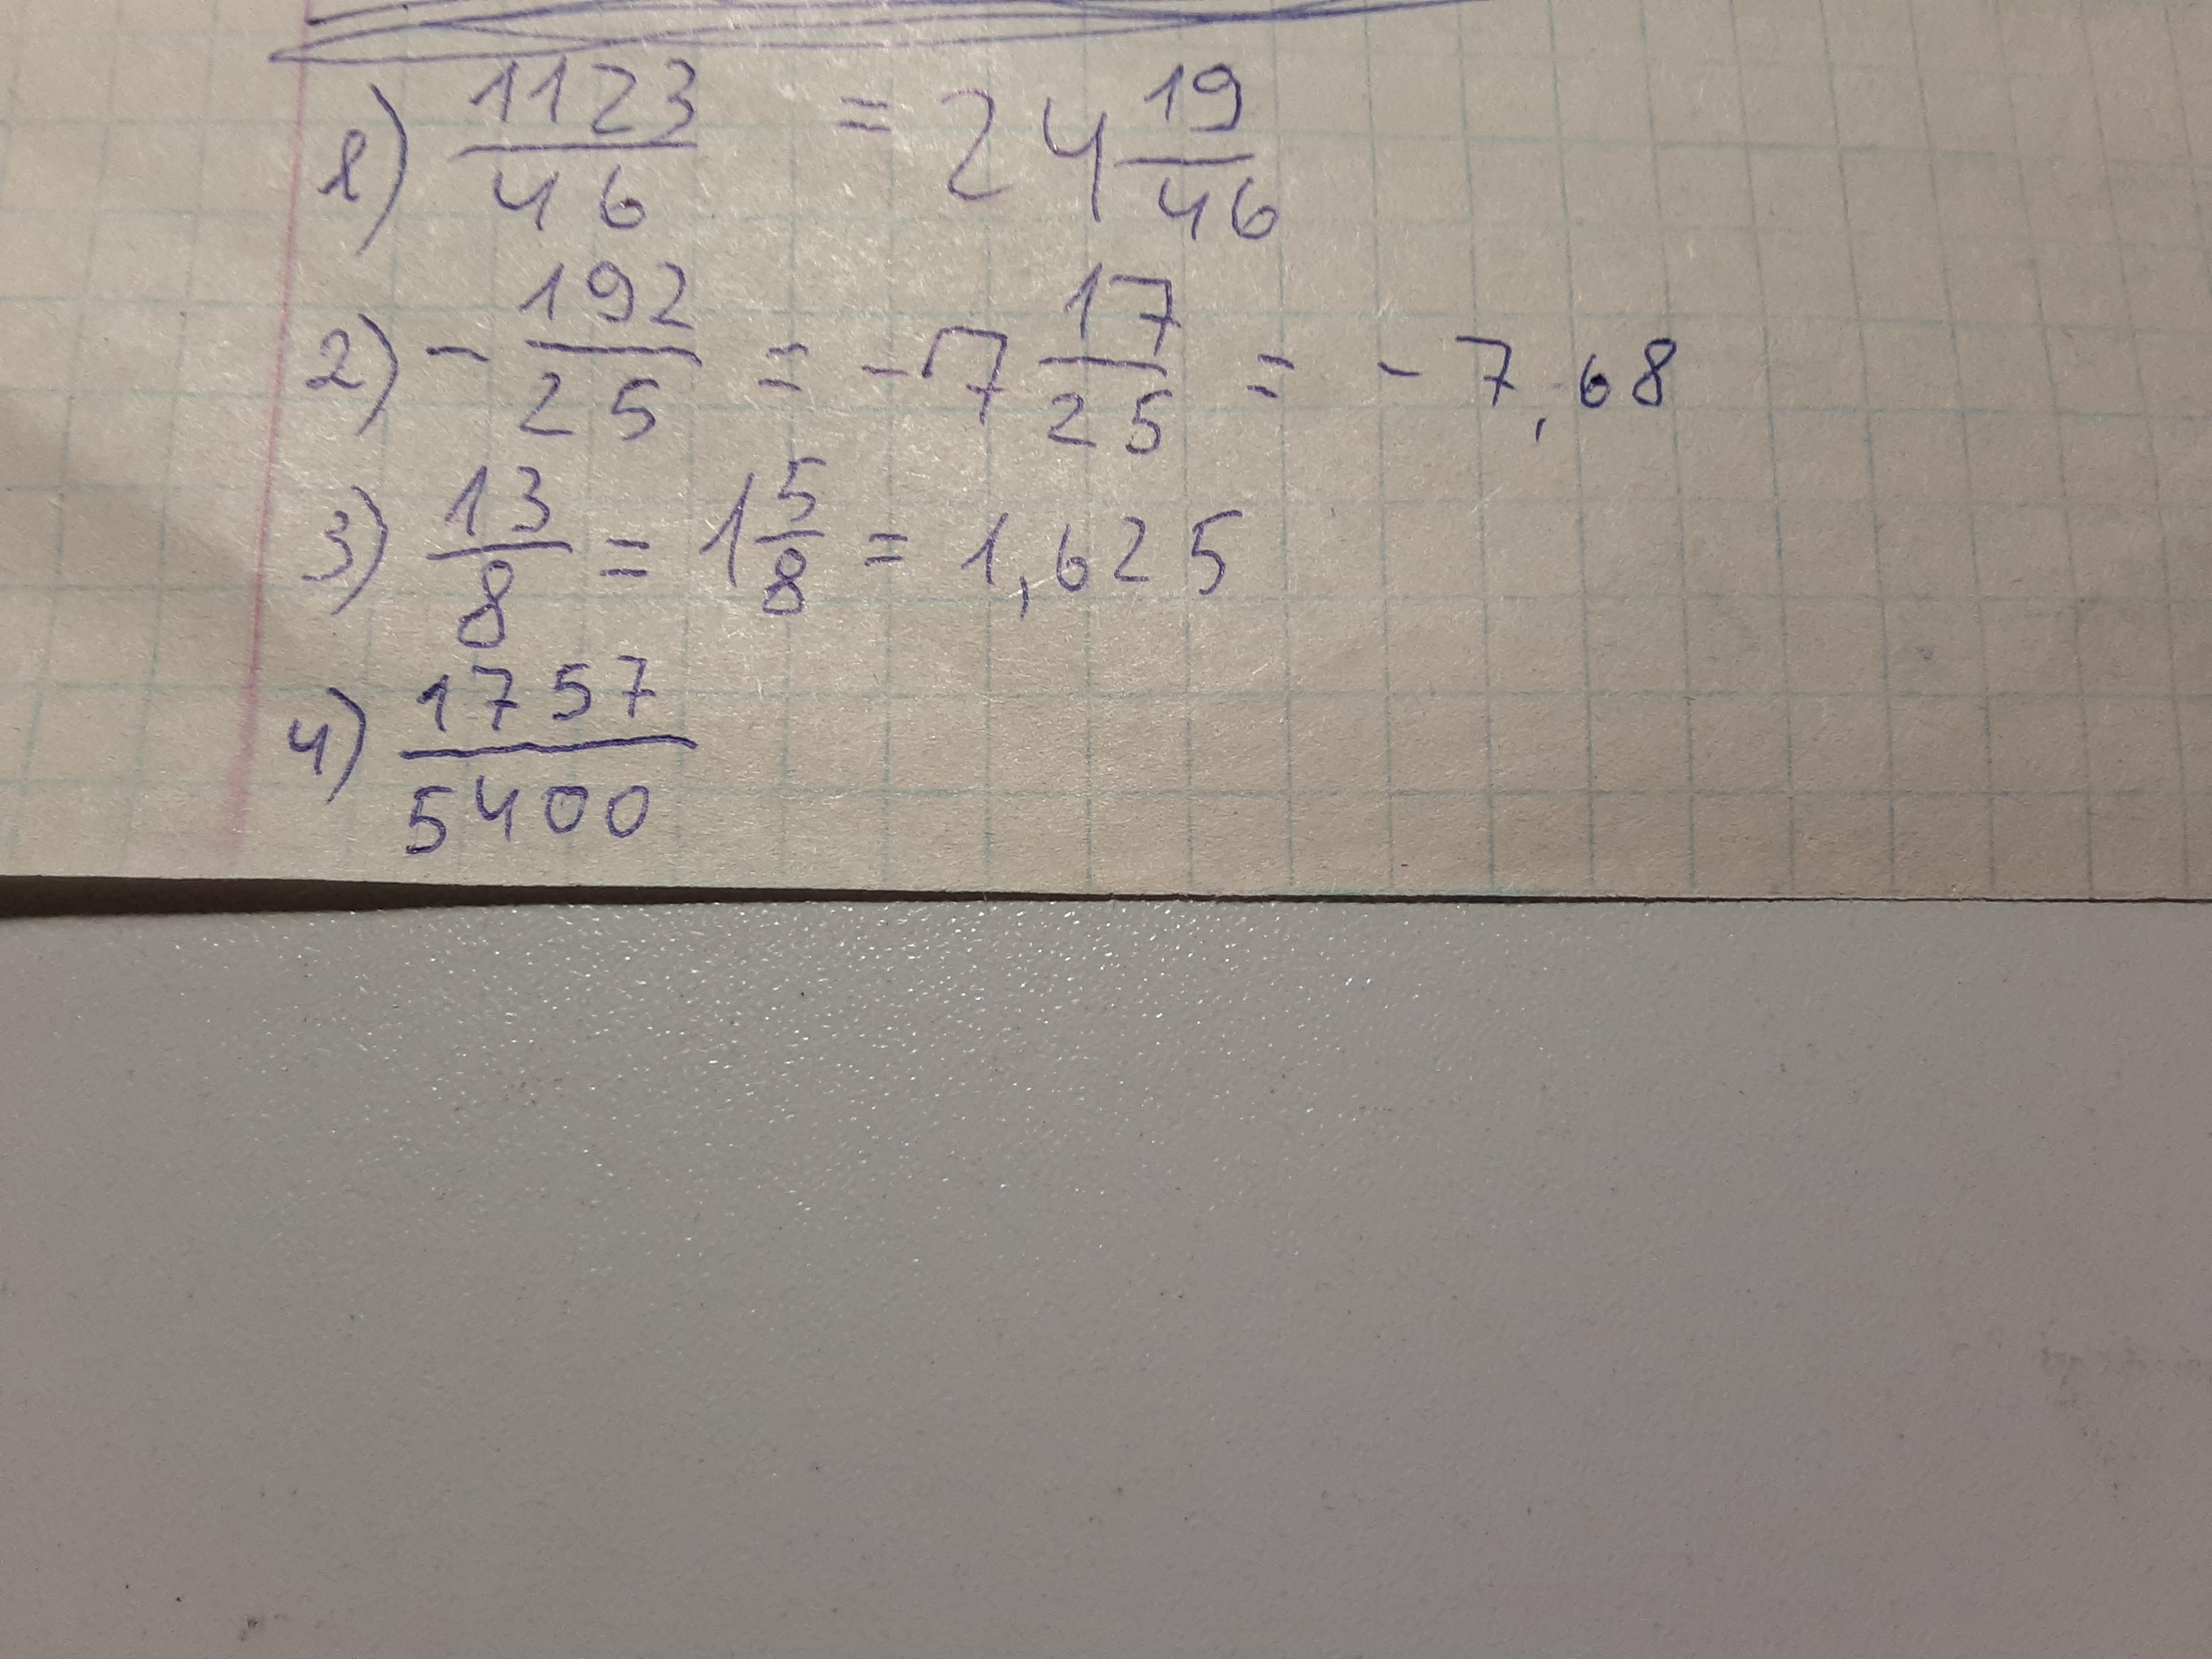 1) 1123/46 = 24 19/46
2) - 192/25 = -7 17/25 = - 7,68
3) 13/8 = 1 5/8 = 1,625
4) 1757/5400